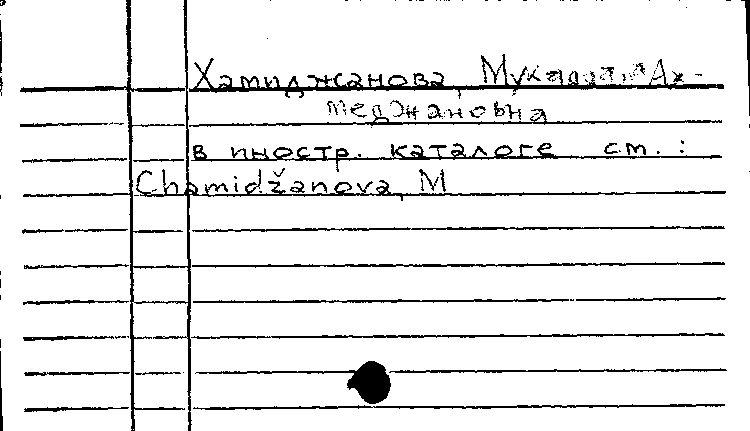 Хамиджанова, Ах-
меджановна
в иностр. каталоге см.:
Chamidžanova, M